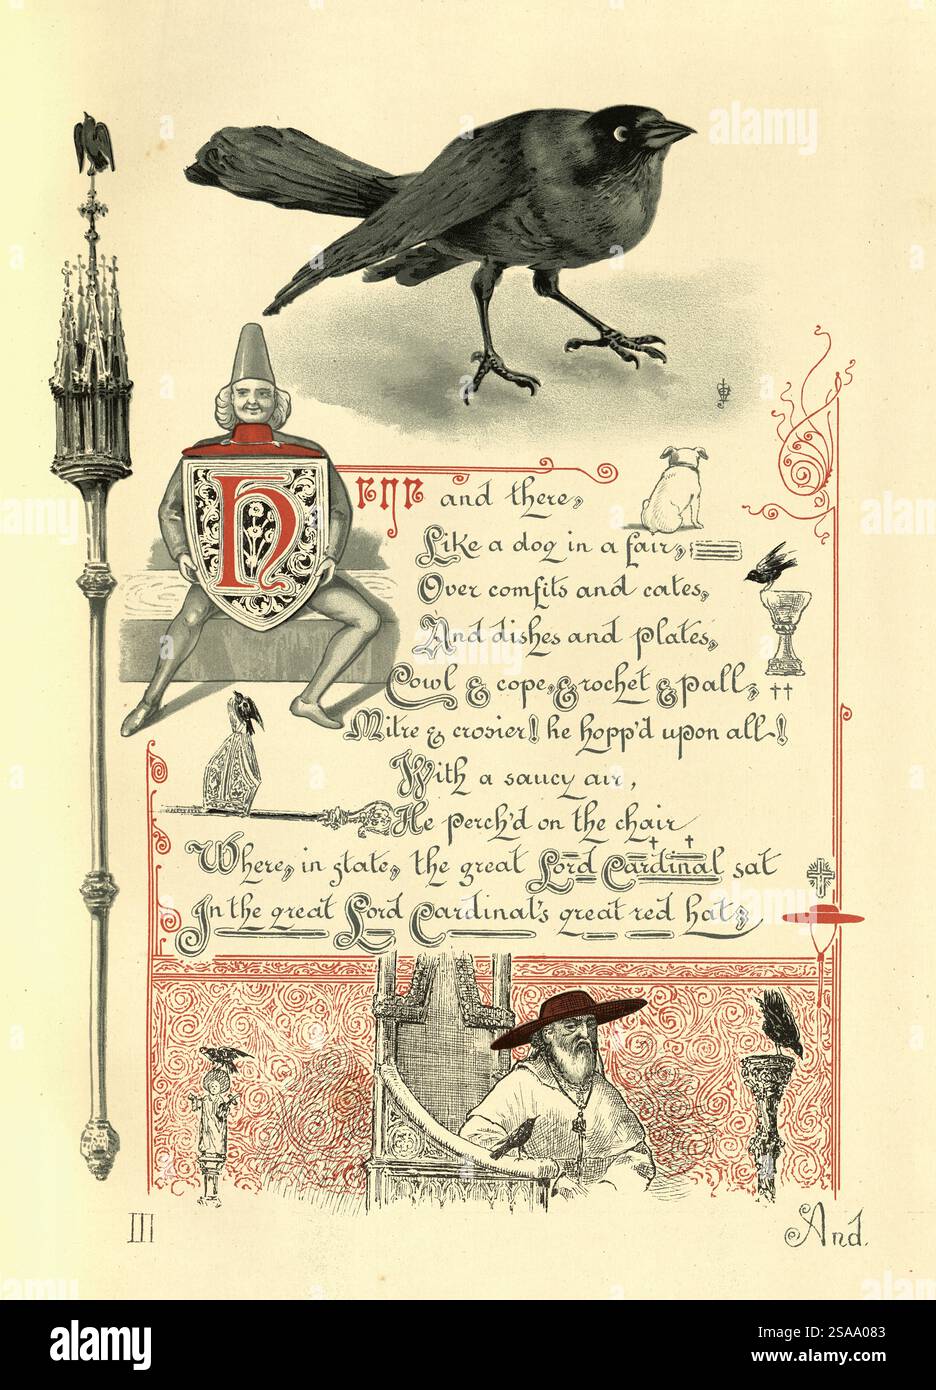 Here and there,
Like a dog in a fair,
Over comfits and cates,
And dishes and plates,
Cowl & cope, & rochet & pall,
Mitre & crosier! he hopp'd upon all!
With a saucy air,
He perch'd on the chair
Where, in state, the great Lord Cardinal sat
In the great Lord Cardinal's great red hat;
III
And.
alamy
Image ID: 2SAA083
www.alamy.com